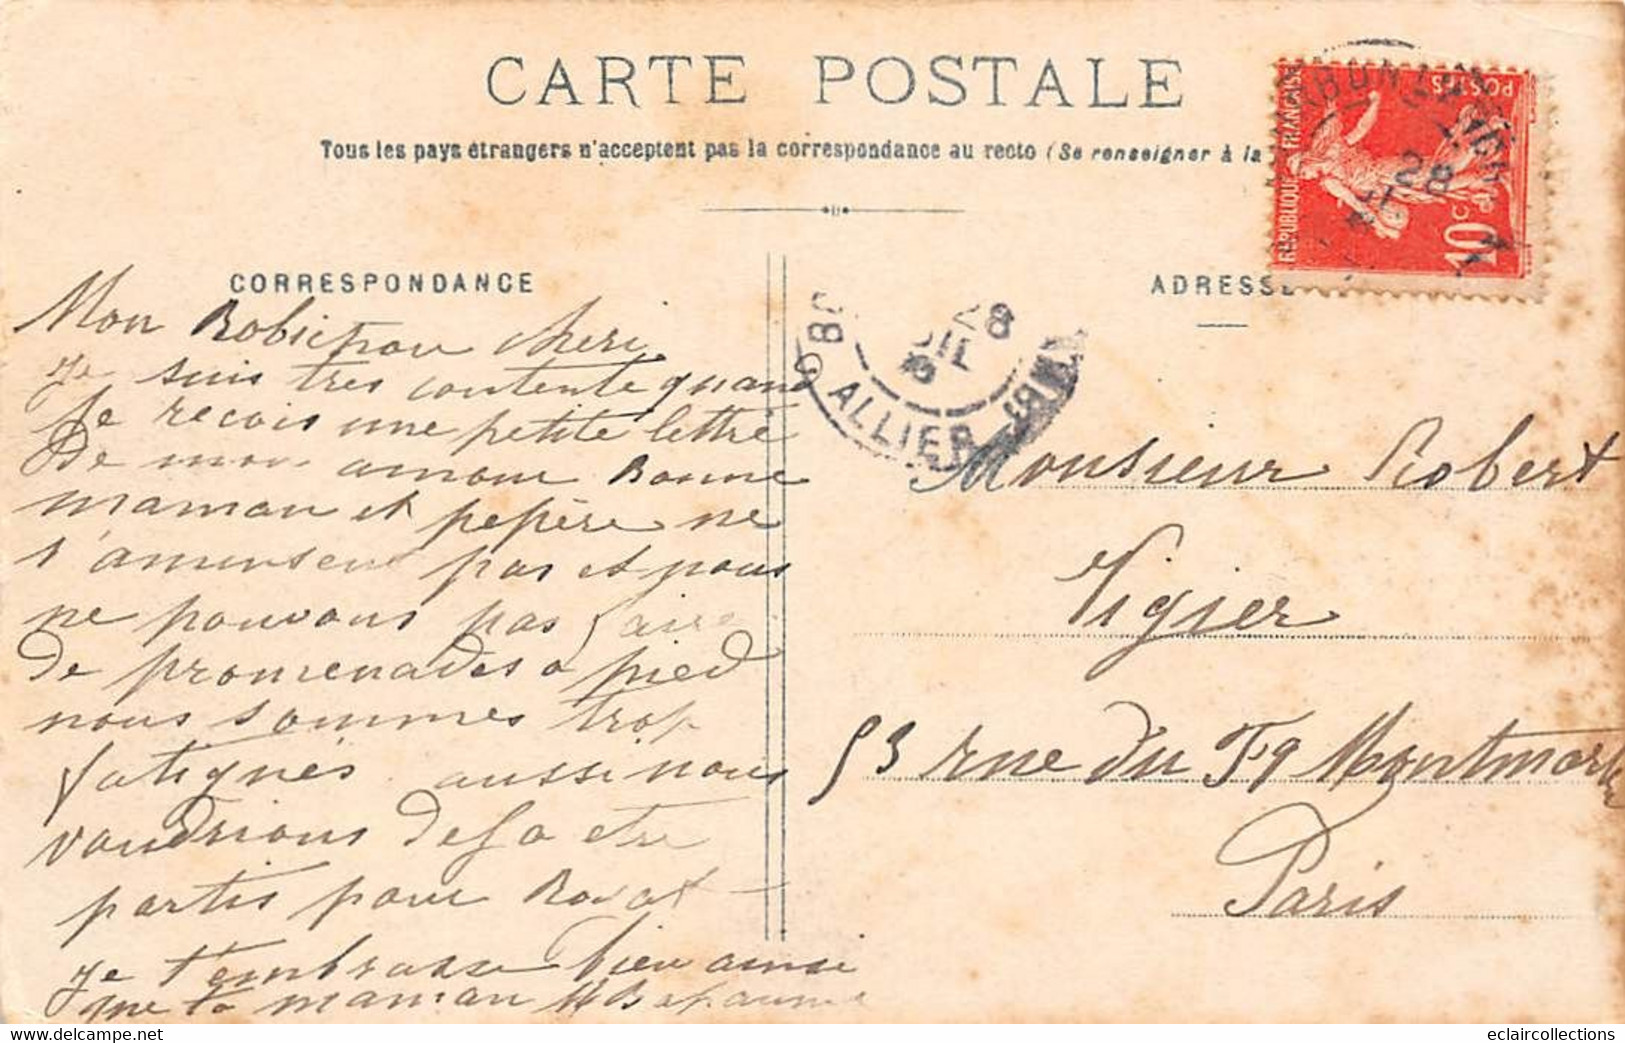 CARTE POSTALE
Tous les pays étrangers n'acceptent pas la correspondance au recto (Se renseigner à la
REPUBLIQUE FRANÇAISE
POSTES
10c
28
CORRESPONDANCE
ADRESSE
28
ALLIER
Mon Robichou cheri
Je suis tres contente quand
Je recois une petite lettre
De mon amour Bonne
maman et pepère ne
s'amusent pas et nous
ne pouvons pas faire
De promenades a pied
nous sommes trop
fatigués aussi nous
voudrions deja etre
partis pour Royat
Je t'embrasse bien ainsi
que ta maman
Monsieur Robert
Vigier
53 rue du Fg Montmartre
Paris
eclaircollections